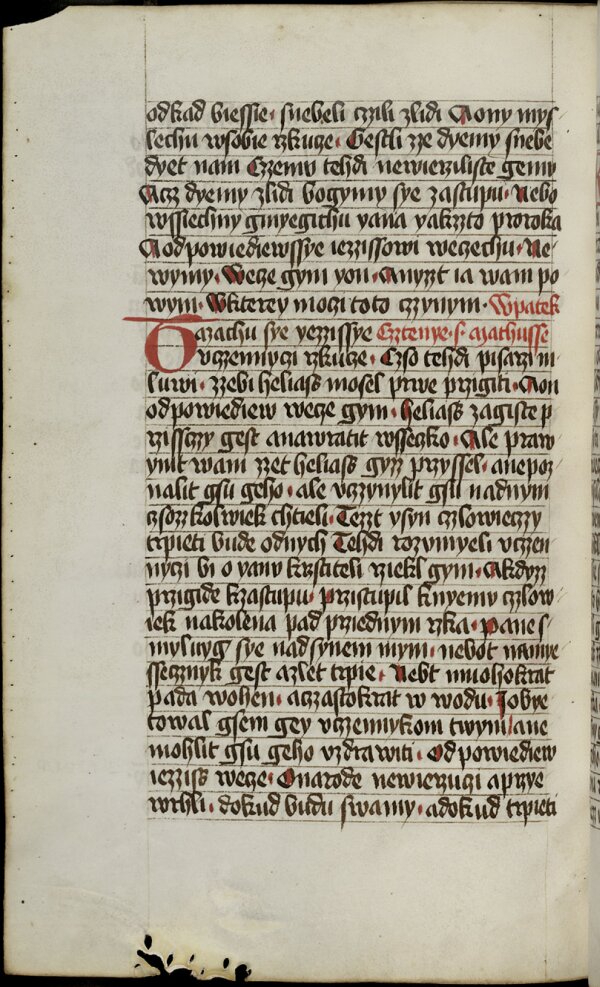 odkad biessie · snebeli czili zlidi Aony mys
lechu wsobie rzkucze · Gestli zze dyemy snebe
dyet nam Czemu tehdi newierzilisте gemu
Acz dyemy zlidi bogymy sye zastupu · Nebo
wssiechny gmyegichu yana yakzto proroka
A odpowiediewssye iezzissowi weczechu · Ne
wymy · Wecze gym yon · Anyzt ia wam po
wym · Wkterey moczi toto czzynym · Wpatek
Tazachu sye yezzissye Cztenye · s · mathusse
vczzennyczi rzkucze · Czso tehdi pisarzi m
luwi · zzebi heliass mosel prwe przigiti · Aon
odpowiediew wecze gym · heliass zagiste p
rzissczy gest anawratit wsseczko · Ale praw
ynit wam zzet heliass gyzz przyssel · anepoz
nalit gsu geho · ale vczzynylit gsu nadnym
czsozzkolwiek chtieli · Tezzt vsyn czlowieczzy
trpieti bude odnych Tehdi rozumyeli vczzen
nyczi bi o yanu krzstiteli rziekl gym · Akdyzz
przigide kzastupu · przistupil knyemu czlow
iek nakolena pad prziednym rzka · Pane s
myluyg sye nadsynem mym · nebot namye
ssecznyk gest azlet trpie · Nebt mnohokrat
pada wohen · aczzastokrat w wodu · Iobye
towal gsem gey vczzennykom twym ane
mohlit gsu geho vzdrawiti · Odpowiediew
iezziss wecze · Onarode newierzuczi aprzye
wrhli · dokud budu swamy · adokud trpieti